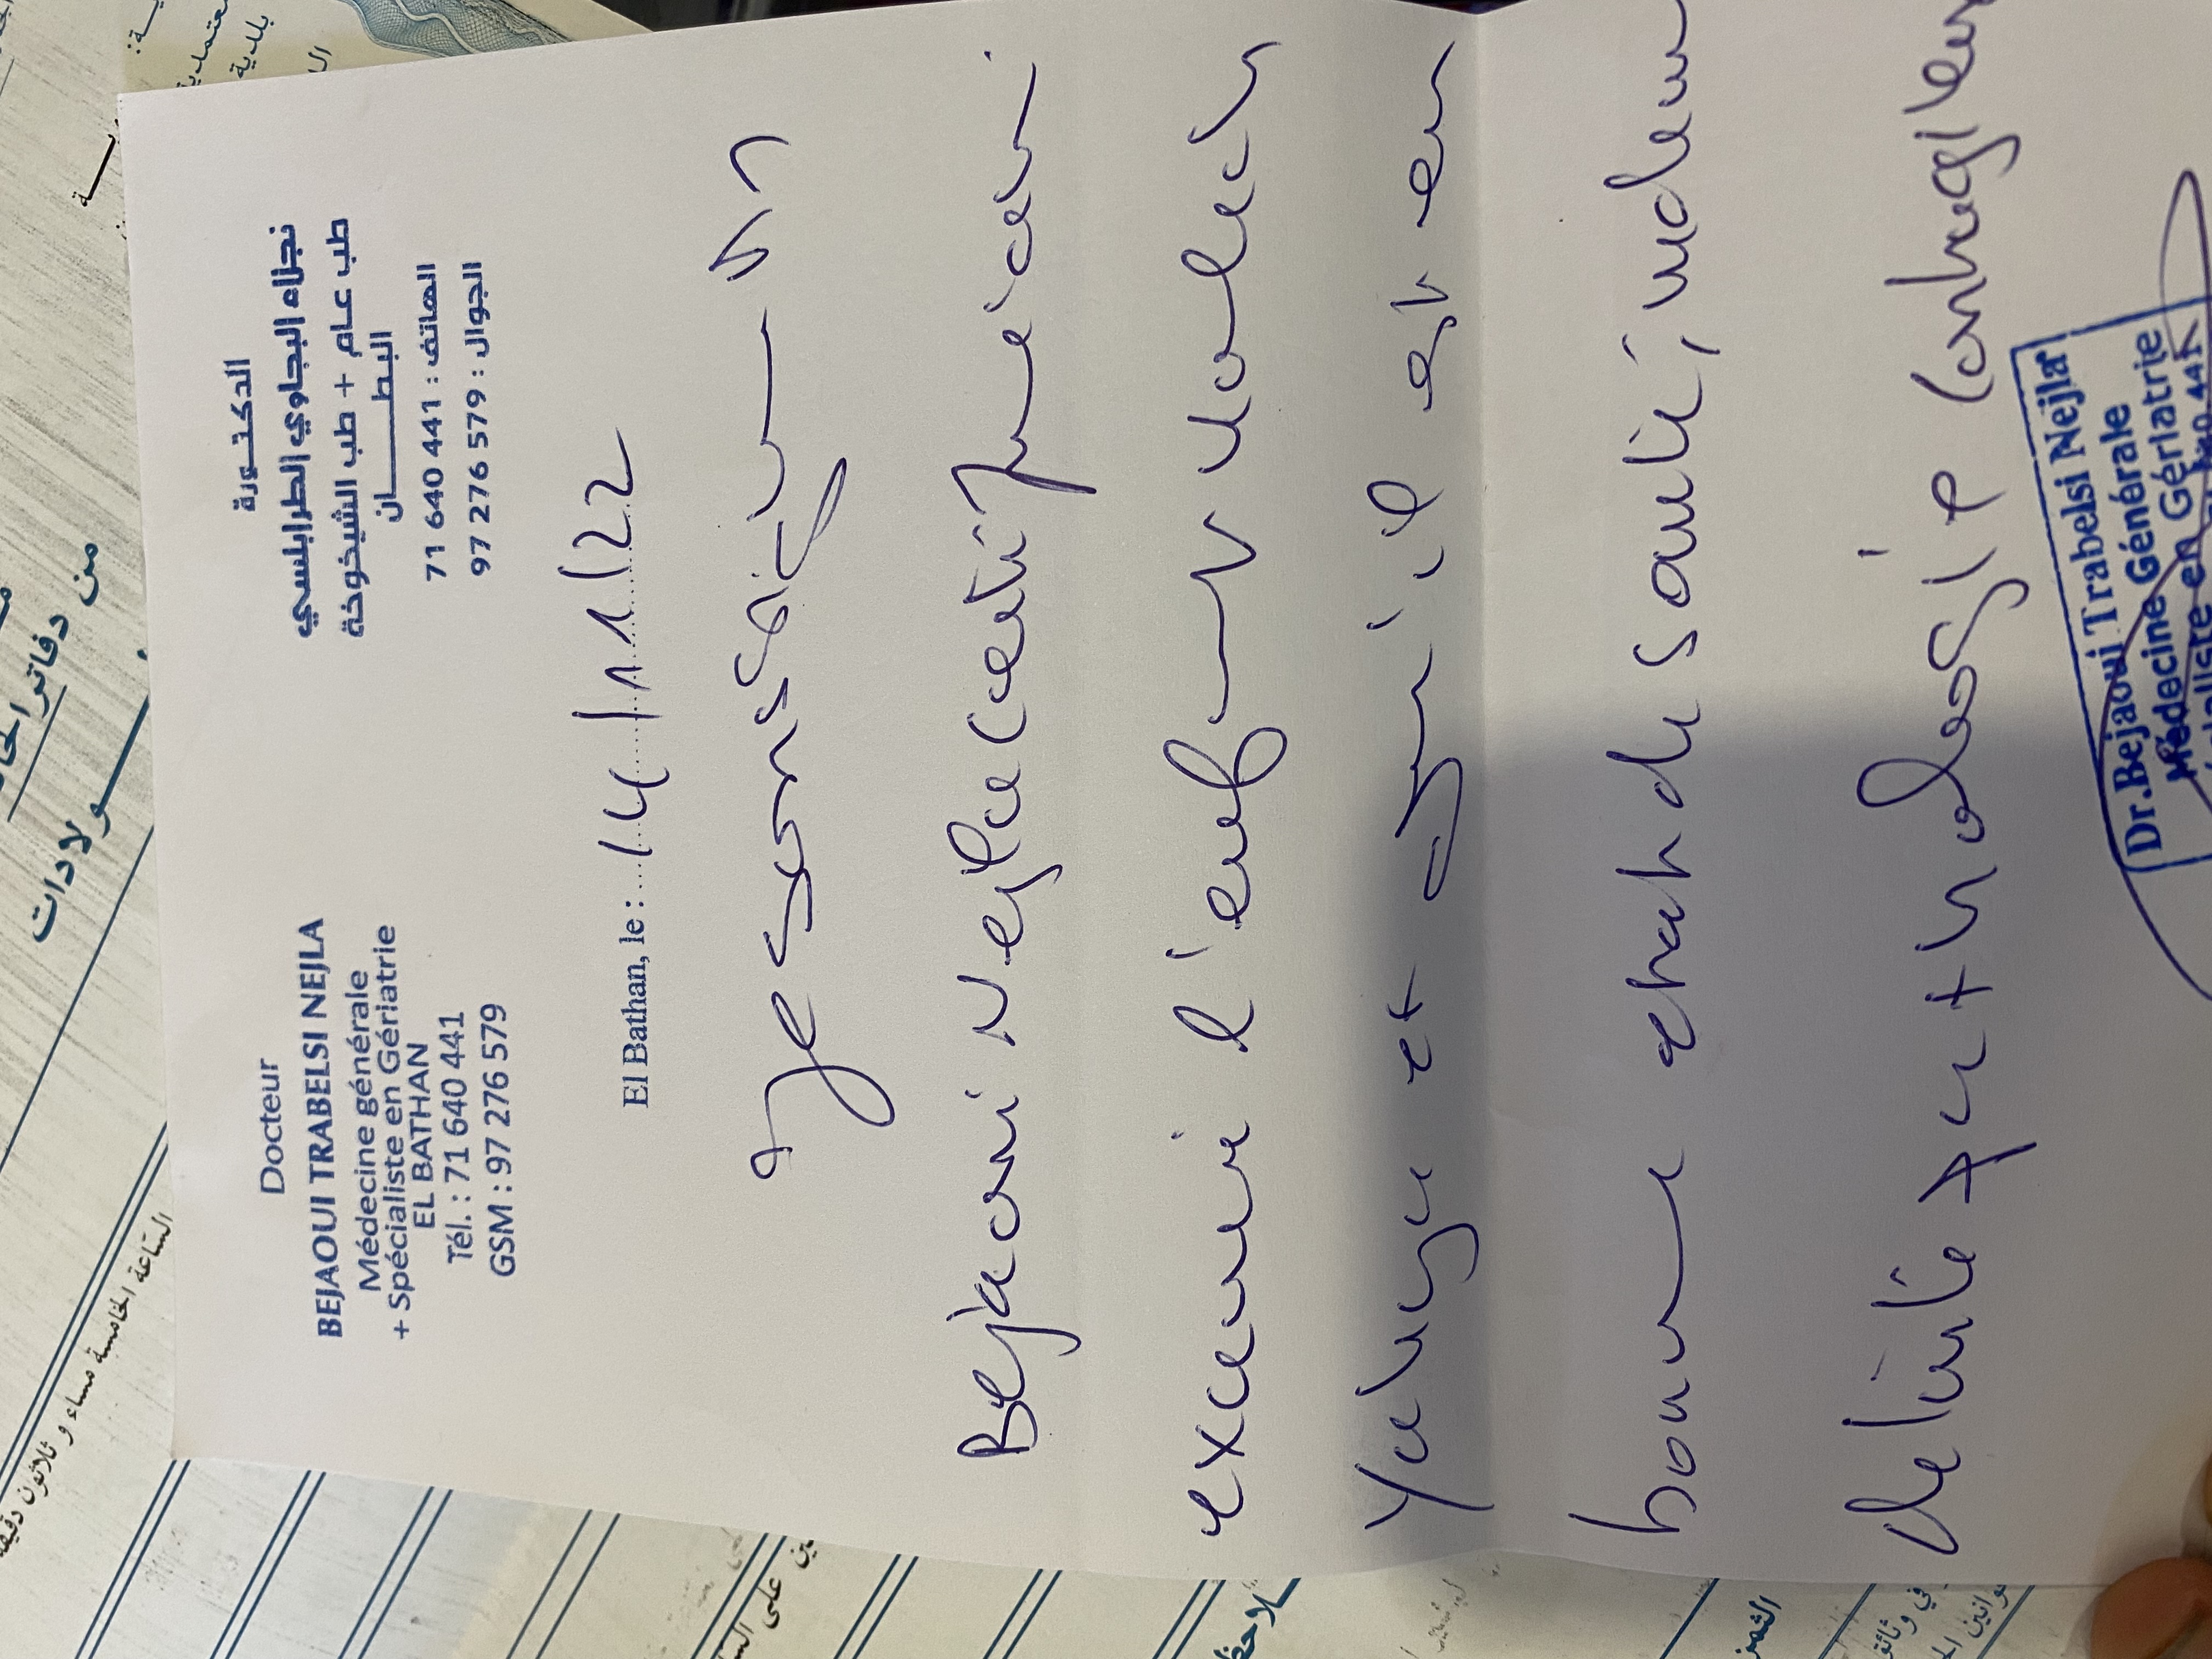 Docteur
BEJAOUI TRABELSI NEJLA
Médecine générale
+ Spécialiste en Gériatrie
EL BATHAN
Tél. : 71 640 441
GSM : 97 276 579
الدكتورة
نجلاء البجاوي الطرابلسي
طب عام + طب الشيخوخة
البطان
الهاتف : 441 640 71
الجوال : 579 276 97
El Bathan, le : 14/11/22
Je soussigné Dr
Bejaoui Nejla certifie avoir
examiné l'enfant
et qu'il est en
bonne état de santé, indemne
de toute pathologie contagieuse
Dr.Bejaoui Trabelsi Nejla
Médecine Générale
Spécialiste en Gériatrie
من دفاتر
ولادات
الساعة الخامسة مساء و ثلاثون دقيقة
بلدية